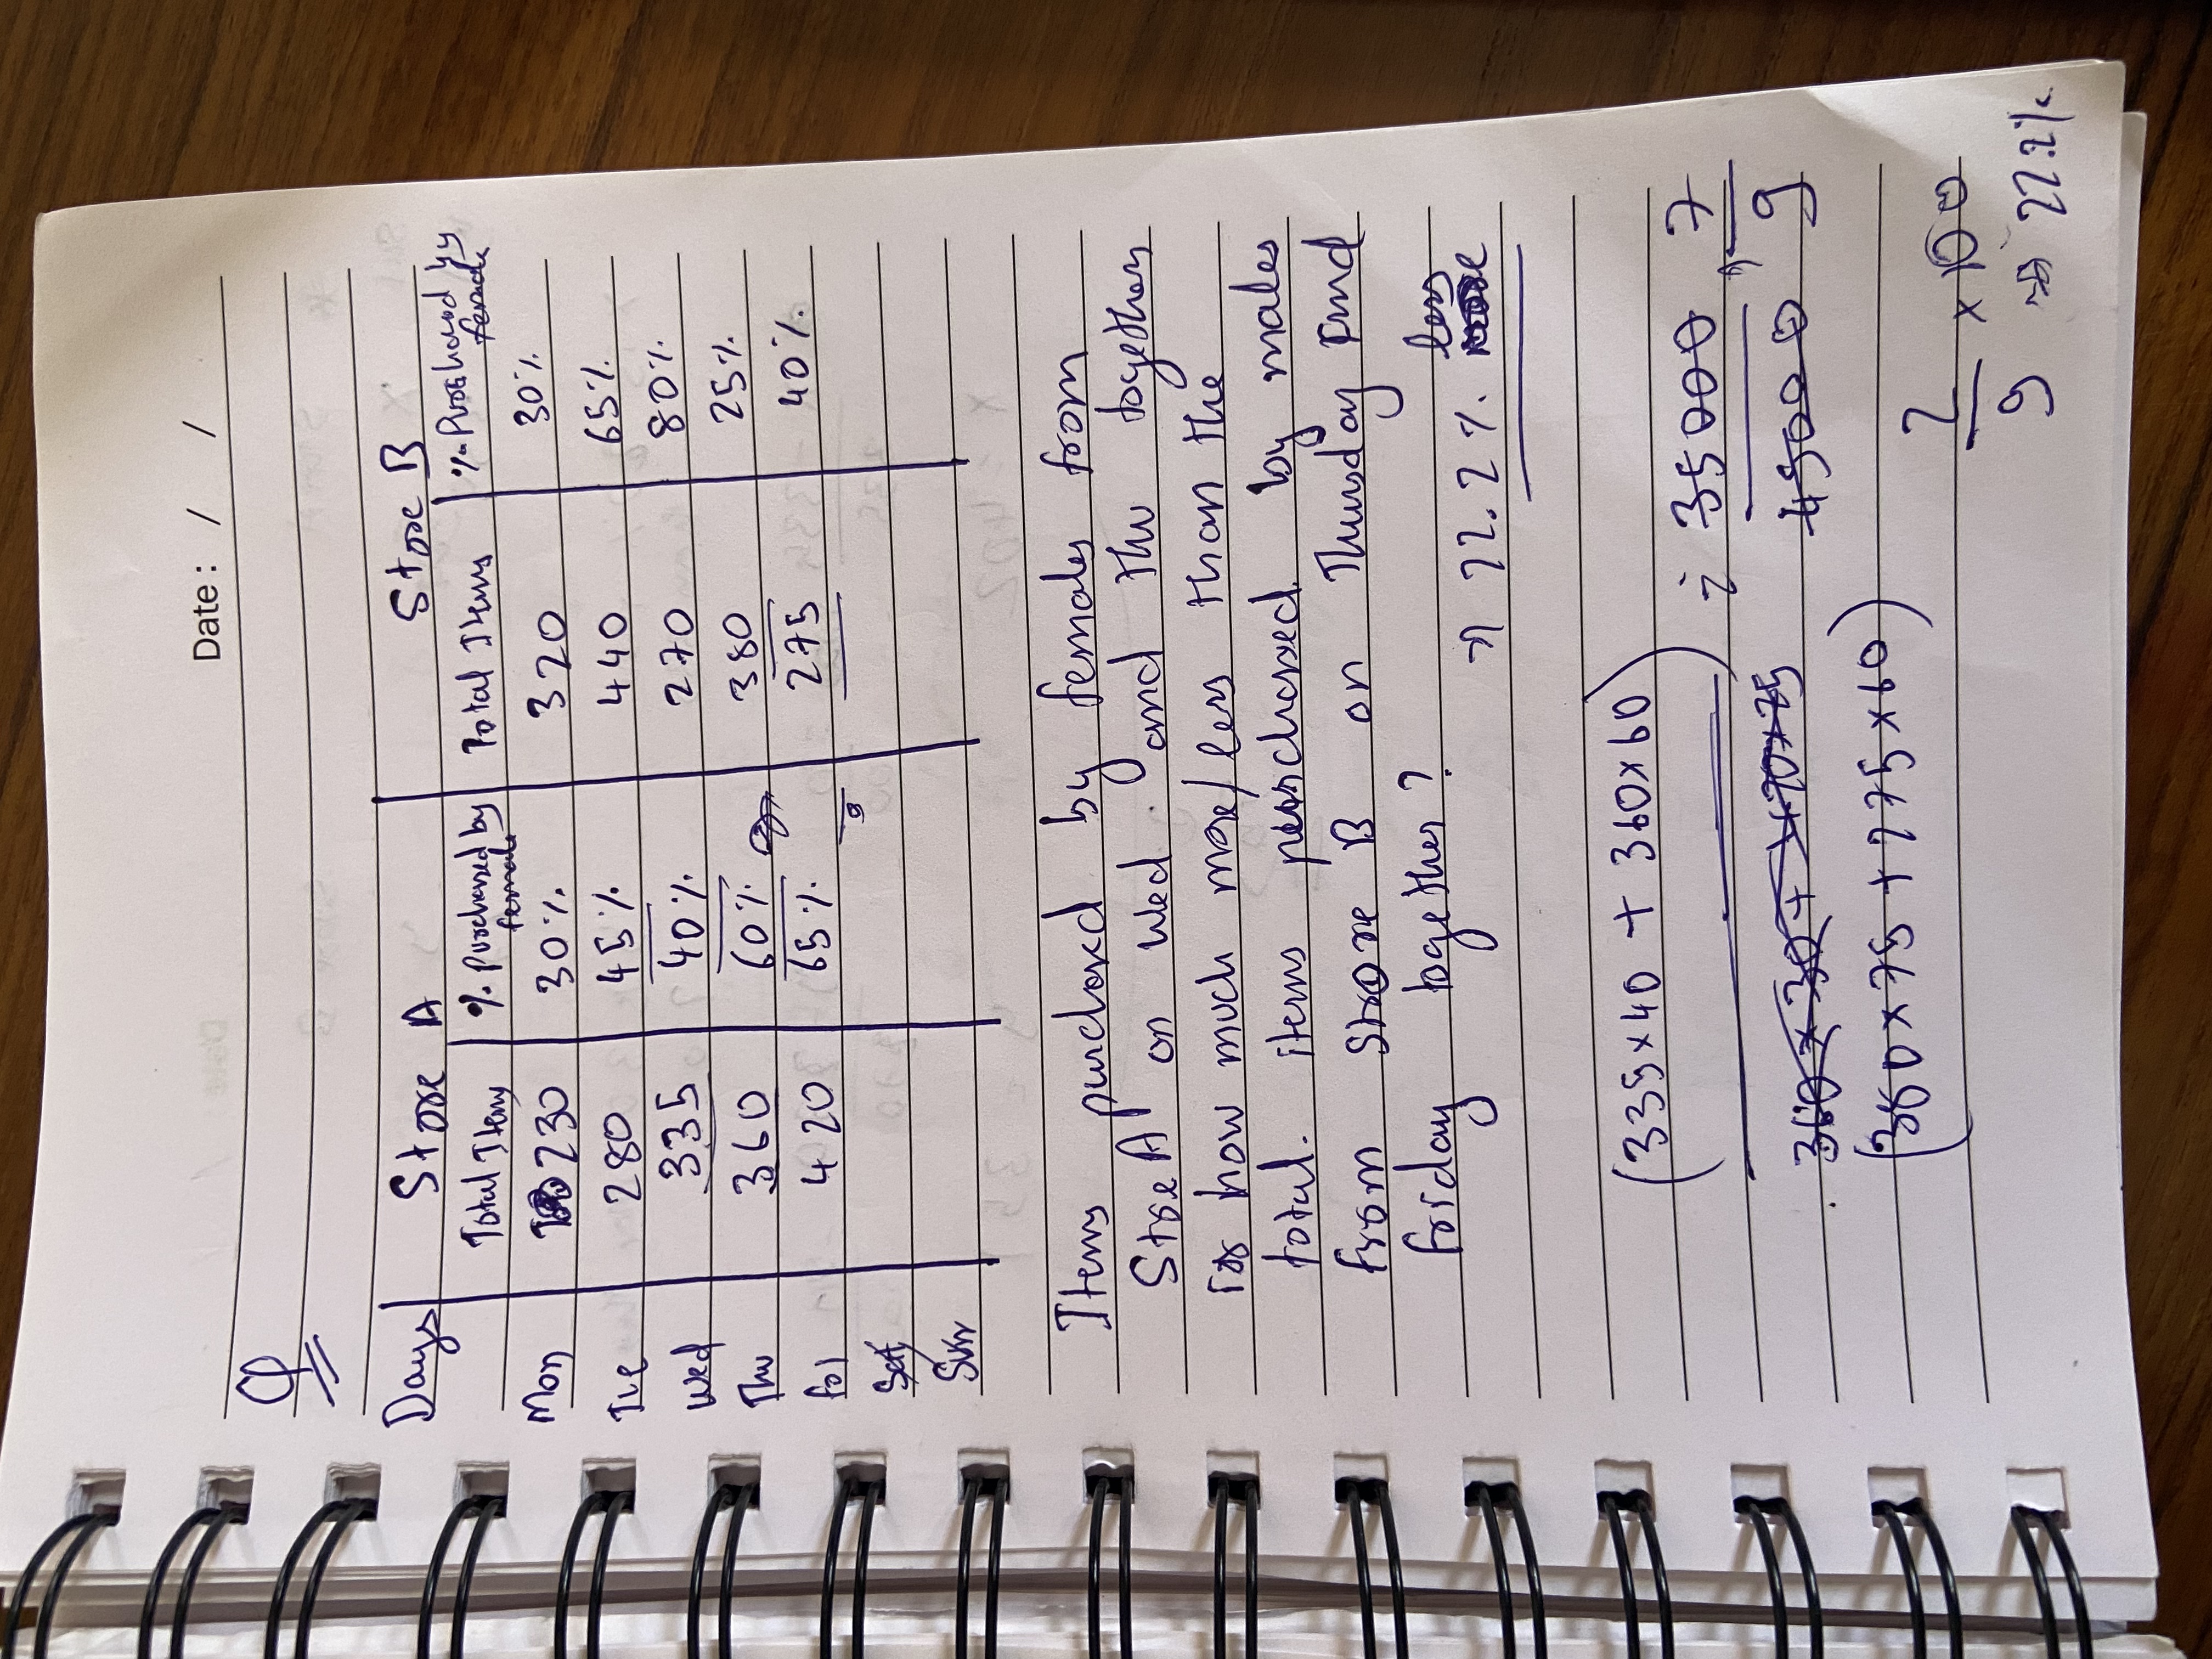 Date : / /
Q
Days Store A Store B
Total Items % purchased by female Total Items % Purchased by female
Mon 230 30% 320 30%
Tue 280 45% 440 65%
Wed 335 40% 270 80%
Thu 360 60% 380 25%
fri 420 65% 275 40%
Sat
Sun
Items purchased by females from
Store A on Wed and Thu together
is how much more/less than the
total. items purchased by males
from store B on Thursday and
friday together?
less
⇒ 22.2%
(335×40 + 360×60)
= 35000 , 7
360 × 30 + 420×25 45000 9
(380×75 + 275×60)
2
9 × 100
⇒ 22.2%